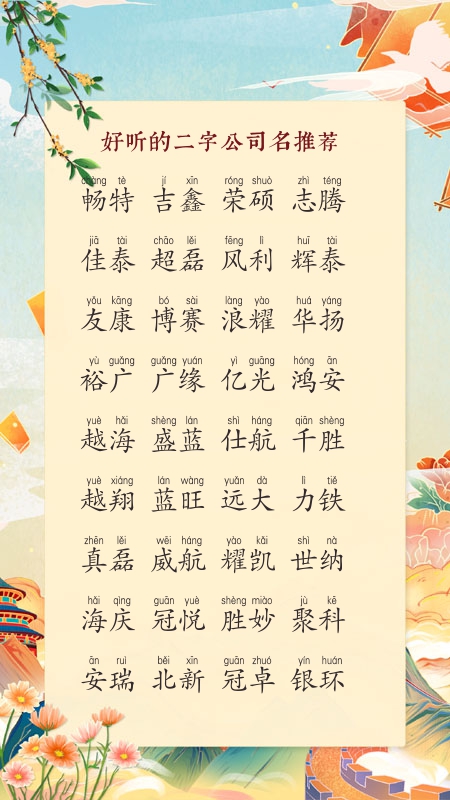 好听的二字公司名推荐
chàng tè jí xīn róng shuò zhì téng
畅特 吉鑫 荣硕 志腾
jiā tài chāo lěi fēng lì huī tài
佳泰 超磊 风利 辉泰
yǒu kāng bó sài làng yào huá yáng
友康 博赛 浪耀 华扬
yù guǎng guǎng yuán yì guāng hóng ān
裕广 广缘 亿光 鸿安
yuè hǎi shèng lán shì háng qiān shèng
越海 盛蓝 仕航 千胜
yuè xiáng lán wàng yuǎn dà lì tiě
越翔 蓝旺 远大 力铁
zhēn lěi wēi háng yào kǎi shì nà
真磊 威航 耀凯 世纳
hǎi qìng guān yuè shèng miào jù kē
海庆 冠悦 胜妙 聚科
ān ruì běi xīn guān zhuó yín huán
安瑞 北新 冠卓 银环